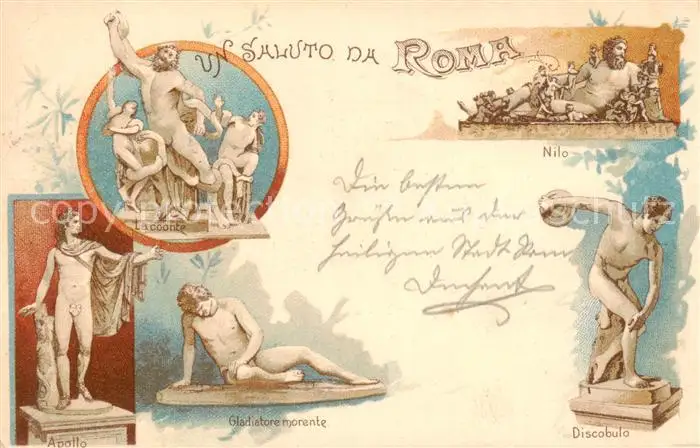 UN SALUTO DA ROMA
Nilo
Lacoonte
Die besten
Grüße aus der
heiligen Stadt Rom
Apollo
Gladiatore morente
Discobulo